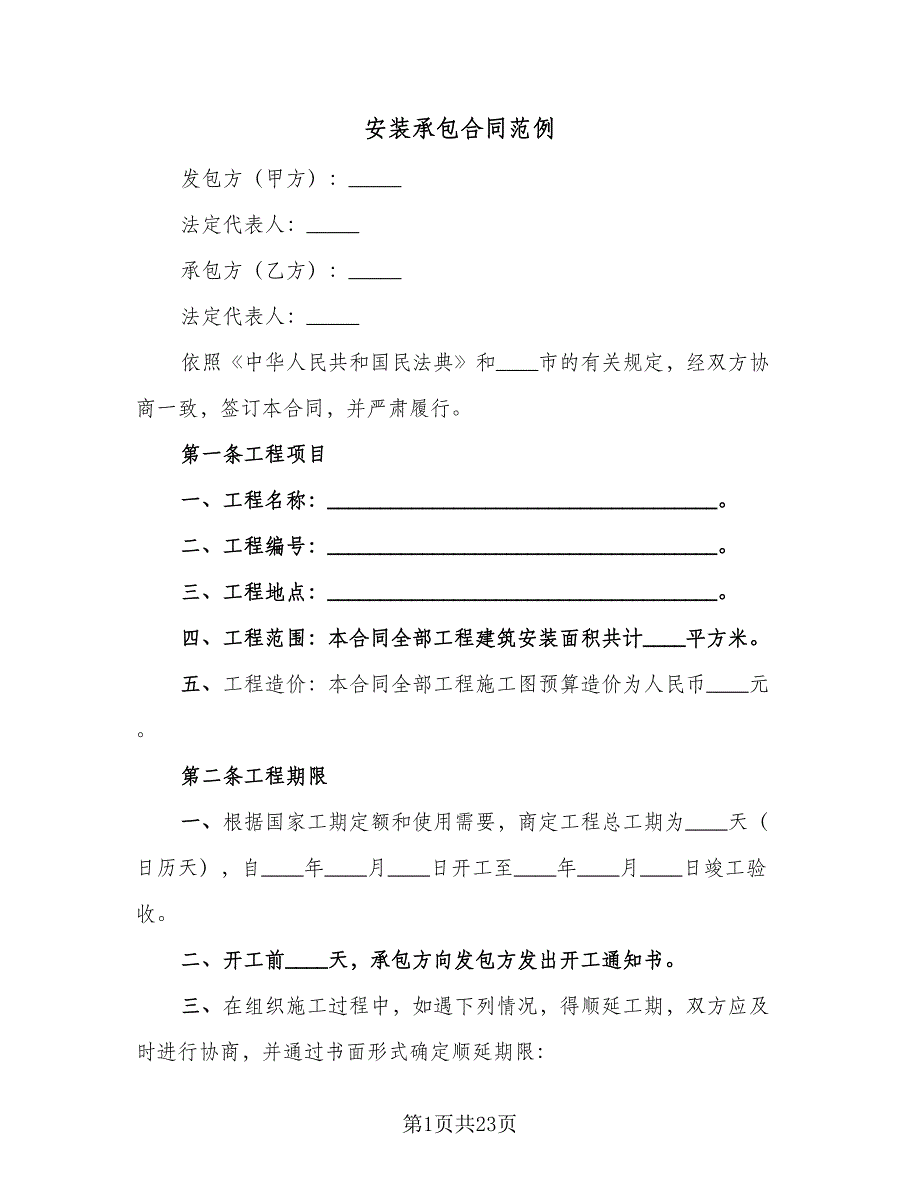 安装承包合同范例
发包方（甲方）：_____
法定代表人：_____
承包方（乙方）：_____
法定代表人：_____
依照《中华人民共和国民法典》和____市的有关规定，经双方协
商一致，签订本合同，并严肃履行。
第一条工程项目
一、工程名称：_____________________________________。
二、工程编号：_____________________________________。
三、工程地点：_____________________________________。
四、工程范围：本合同全部工程建筑安装面积共计____平方米。
五、工程造价：本合同全部工程施工图预算造价为人民币____元
。
第二条工程期限
一、根据国家工期定额和使用需要，商定工程总工期为____天（
日历天），自____年____月____日开工至____年____月____日竣工验
收。
二、开工前____天，承包方向发包方发出开工通知书。
三、在组织施工过程中，如遇下列情况，得顺延工期，双方应及
时进行协商，并通过书面形式确定顺延期限：
第1页共23页